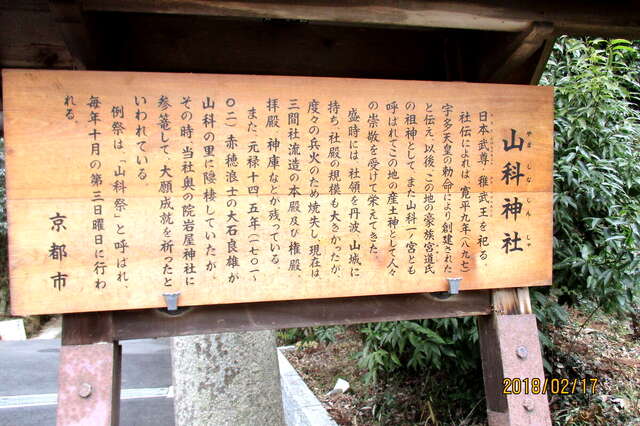 山科神社
やましなじんじゃ
日本武尊、稚武王を祀る。
社伝によれば、寛平九年(八九七)
宇多天皇の勅命により創建された
と伝え、以後、この地の豪族宮道氏
の祖神として、また山科一ノ宮とも
呼ばれてこの地の産土神として人々
の崇敬を受けて栄えてきた。
盛時には、社領を丹波、山城に
持ち、社殿の規模も大きかったが、
度々の兵火のため焼失し、現在は
三間社流造の本殿及び権殿、
拝殿、神庫などか残っている。
また、元禄十四、五年(一七〇一〜
〇二)赤穂浪士の大石良雄が
山科の里に隠棲していたが、
その時、当社奥の院岩屋神社に
参篭して、大願成就を祈ったと
いわれている。
例祭は、「山科祭」と呼ばれ、
毎年十月の第三日曜日に行わ
れる。
京都市
2018/02/17